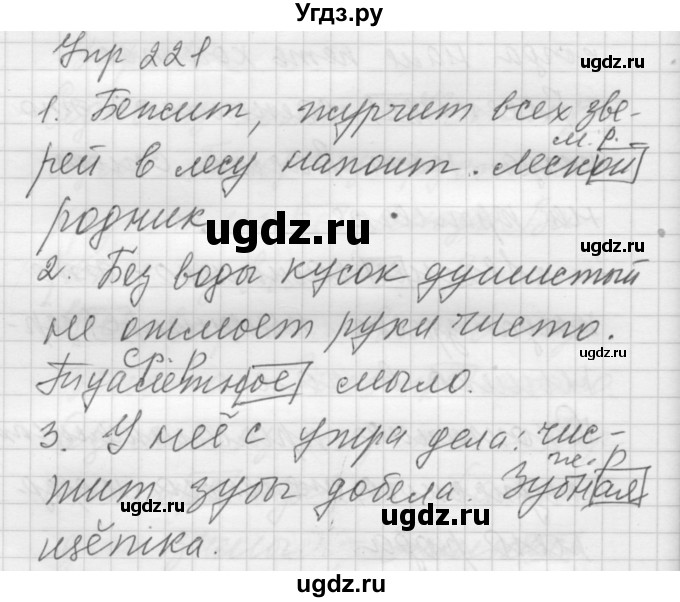 Угдз.ру
Упр 221
ugdz.ru
1. Бежит, журчит всех зве-
м. р.
рей в лесу напоит. Лесной
ugdz.ru
родник.
ugdz.ru
2. Без воды кусок душистый
не отмоет руки чисто.
ugdz.ru
ср. р
Туалетное мыло.
3. У неё с утра дела: чис-
ж. р
тит зубы добела. Зубная
ugdz.ru
ugdz.ru
щётка.
ugdz.ru